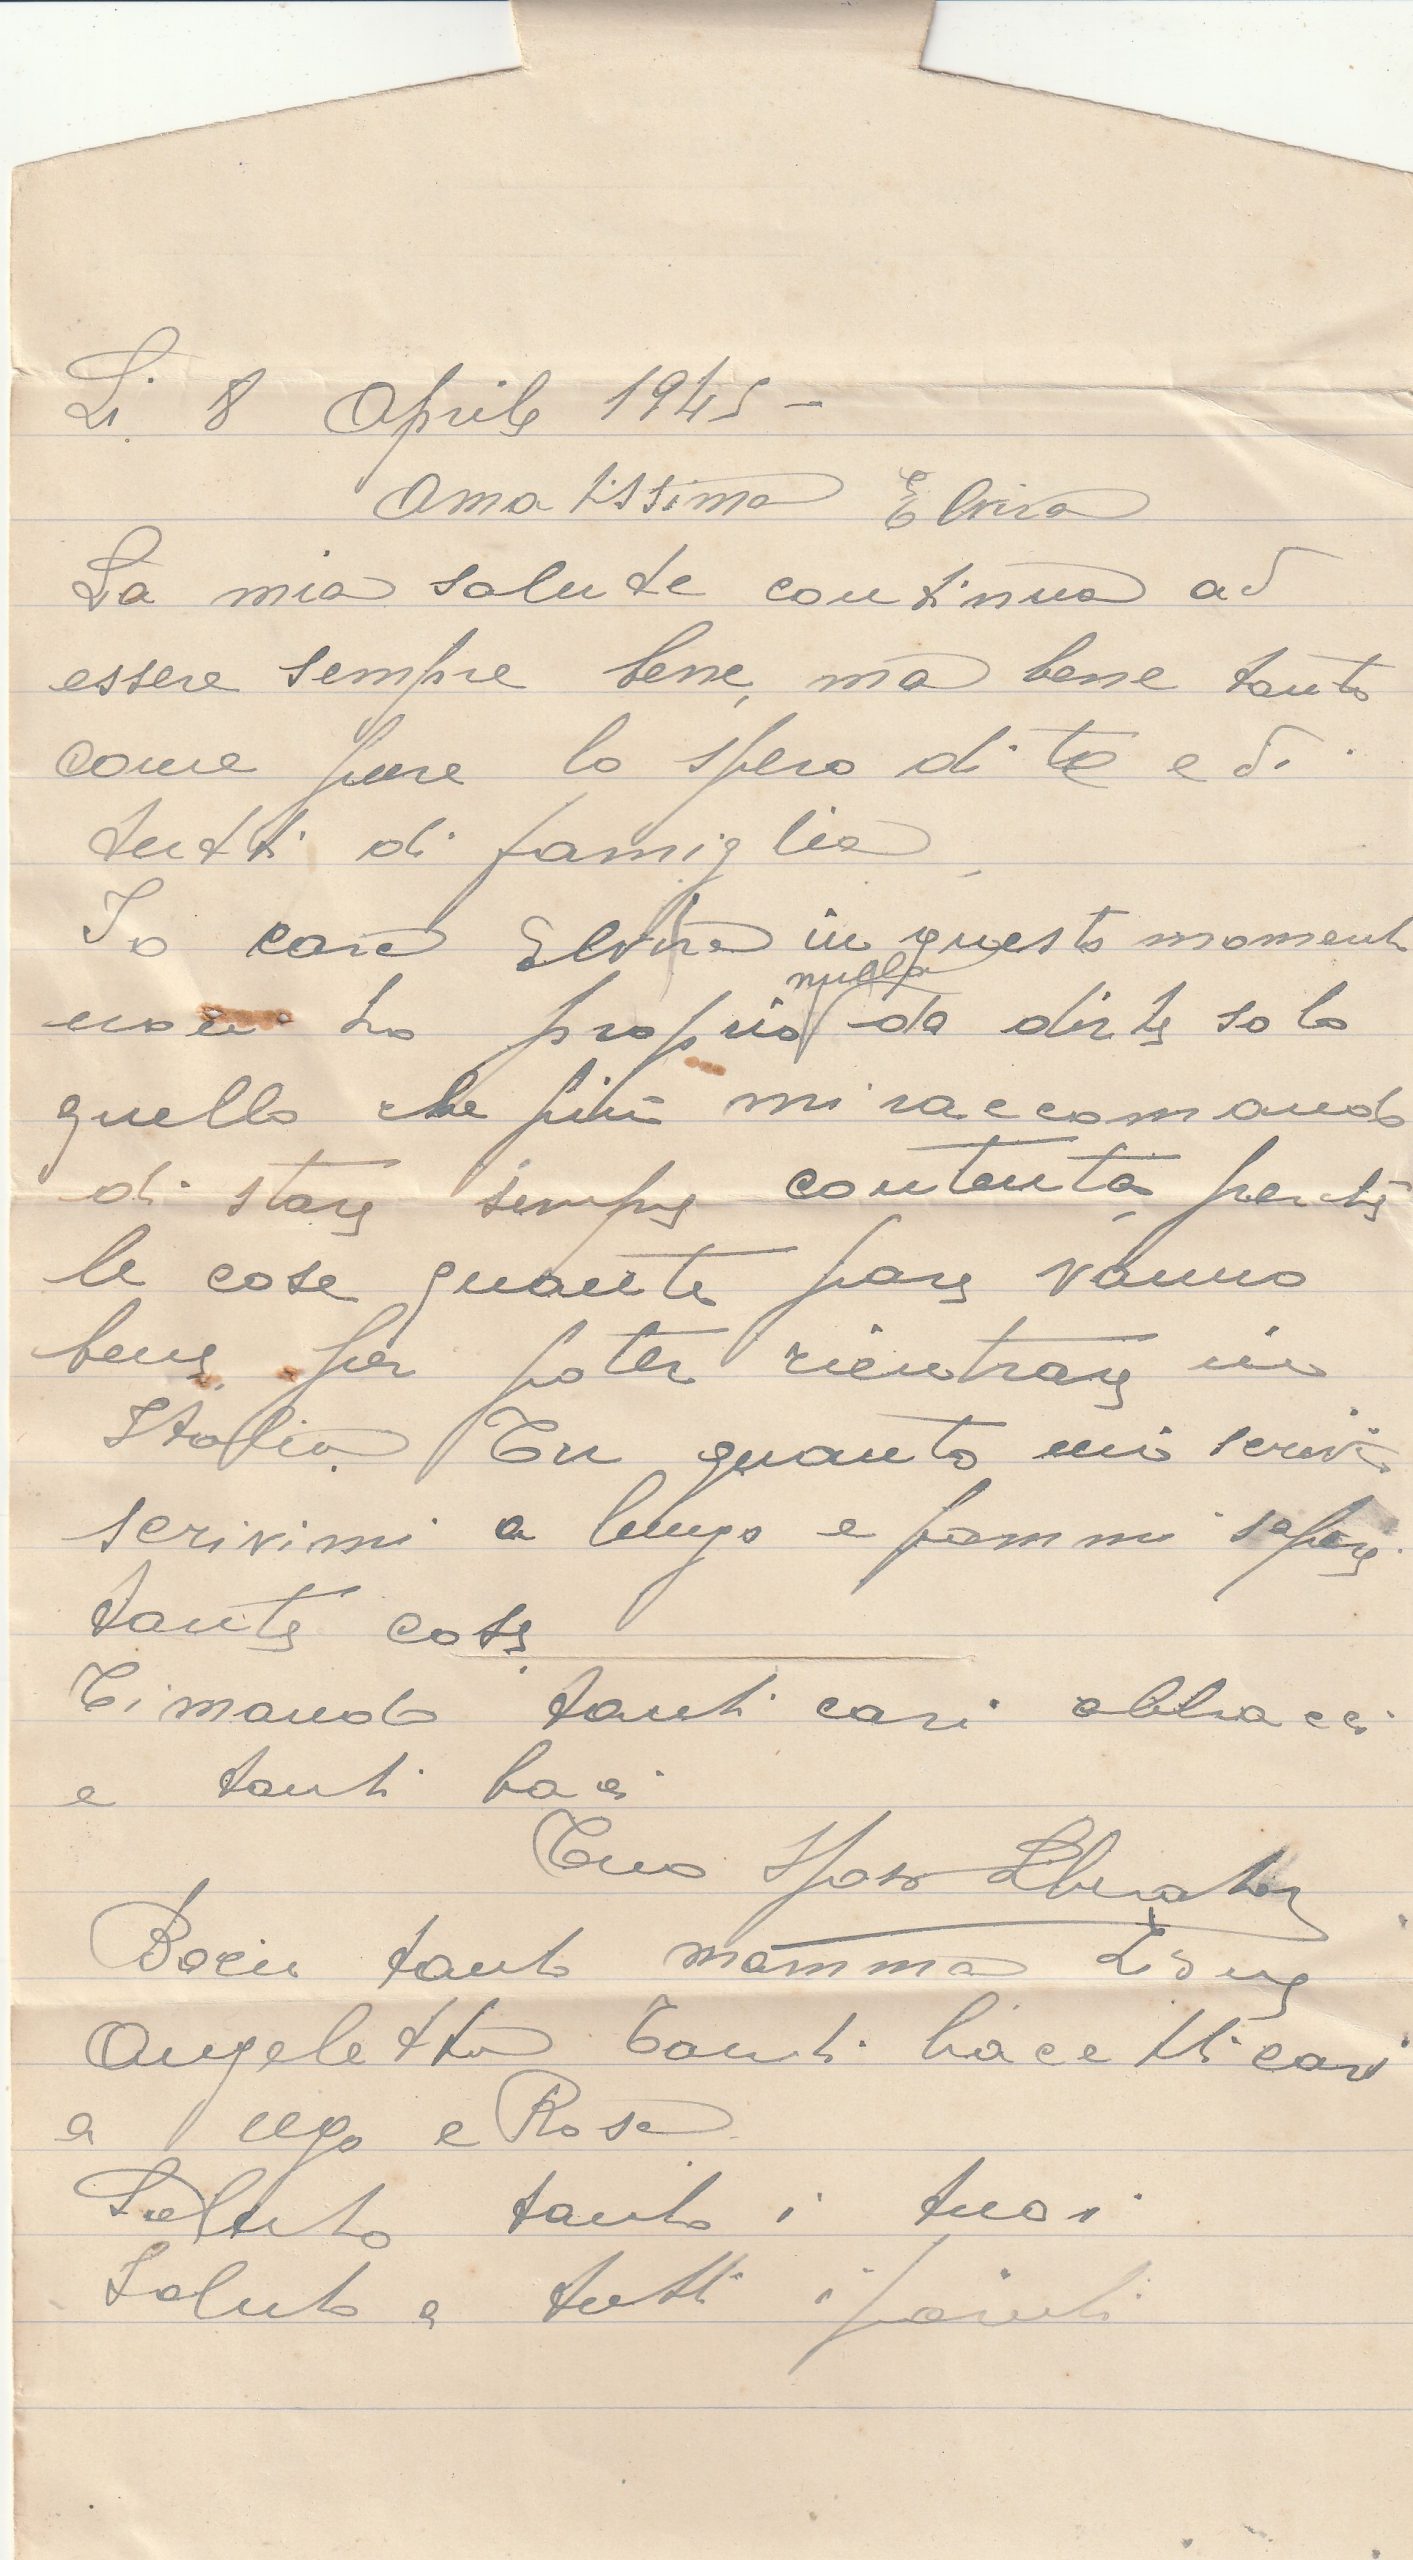 Li 8 Aprile 1945 -
Amatissima Elvira
La mia salute continua ad
essere sempre bene, ma bene tanto
come pure lo spero di te e di
tutti di famiglia,
Io cara Elvira in questo momento
non ho proprio nulla da dirti solo
quello che più mi raccomando
di stare sempre contenta, perchè
le cose quanto pare vanno
bene, per poter rientrare in
Italia. Tu quanto mi scrivi
scrivimi a lungo e fammi sapere
tante cose.
Ti mando tanti cari abbracci
e tanti baci
Tuo Sposo Liberatore
Bacia tanto mamma
Angeletta Tanti bacetti cari
a Ugo e Rosa
Saluto tanto i tuoi
Saluto a tutti i parenti